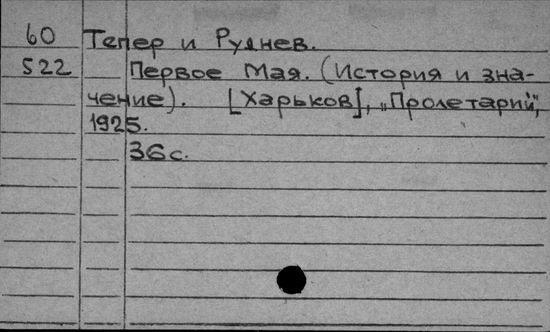 60 Тепер и Руднев.
522 Первое Мая. (История и зна-
чение). [Харьков], „Пролетарий",
1925.
36 с.